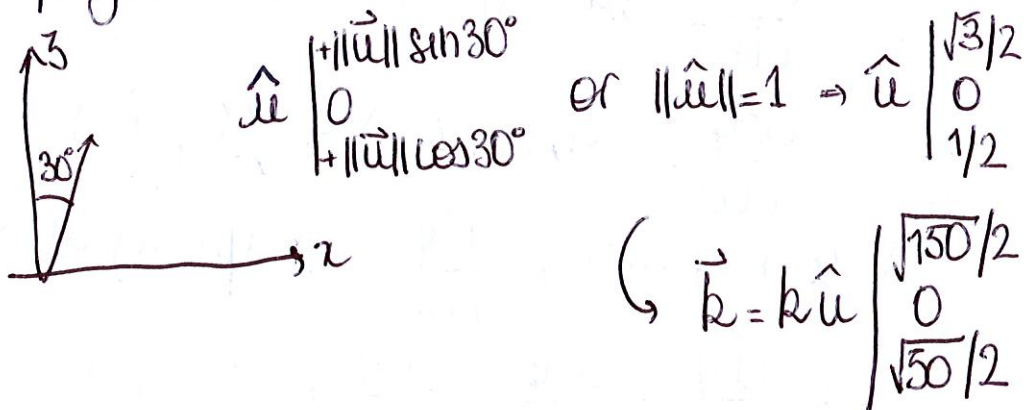 z
30°
x
û | +||u⃗|| sin30°
0
+||u⃗|| cos30°
or ||û||=1 ⇒ û | √3/2
0
1/2
k⃗ = kû | √150/2
0
√50/2